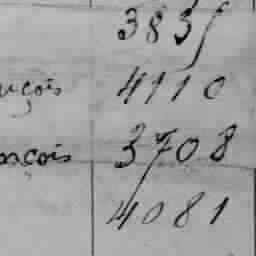 3835
uçois 4110
ançois 3708
4081